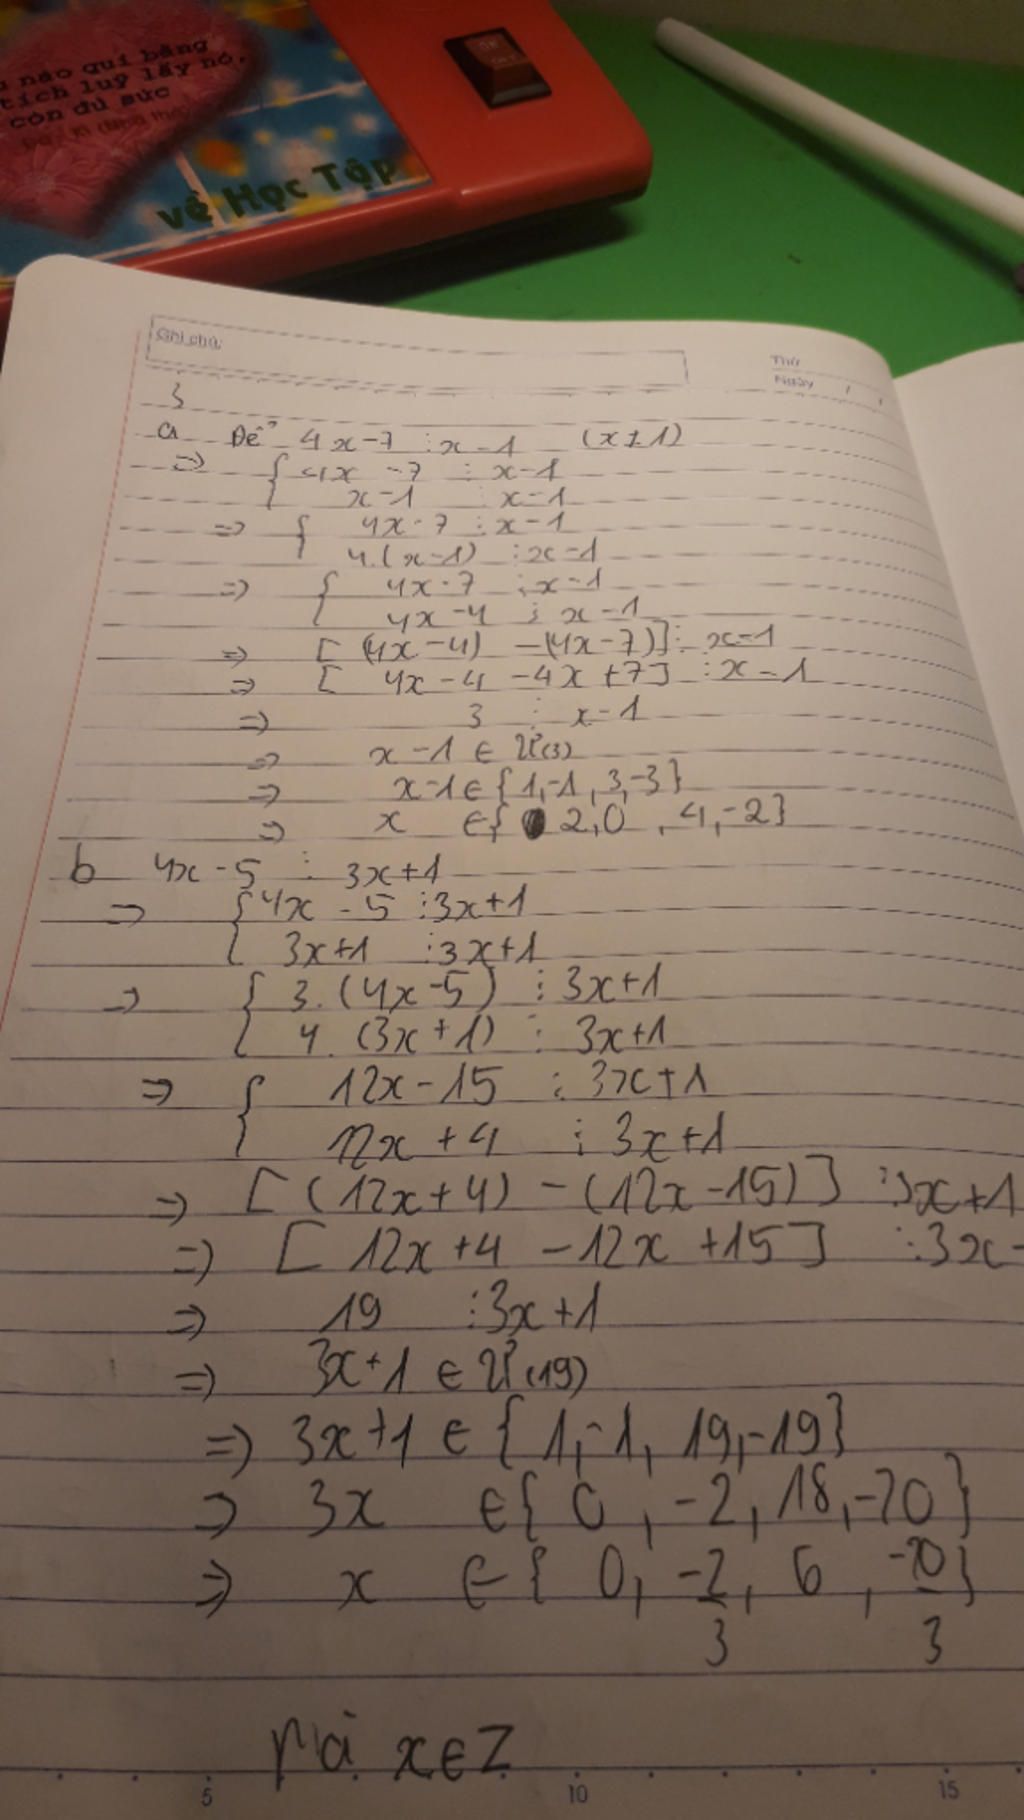 nào quí bằng
tích luỹ lấy nó,
còn đủ sức
về Học Tập
Ghi chú:
Thứ
Ngày / /
3
a Để 4x-7 ⋮ x-1 (x≠1)
=> { 4x-7 ⋮ x-1
x-1 ⋮ x-1
=> { 4x-7 ⋮ x-1
4.(x-1) ⋮ x-1
=> { 4x-7 ⋮ x-1
4x-4 ⋮ x-1
=> [(4x-4) -(4x-7)] ⋮ x-1
=> [ 4x-4 -4x+7] ⋮ x-1
=> 3 ⋮ x-1
=> x-1 ∈ Ư(3)
=> x-1 ∈ {1,-1,3,-3}
=> x ∈ { 2,0 ,4,-2}
b 4x-5 ⋮ 3x+1
=> { 4x-5 ⋮ 3x+1
3x+1 ⋮ 3x+1
=> { 3.(4x-5) ⋮ 3x+1
4.(3x+1) ⋮ 3x+1
=> { 12x-15 ⋮ 3x+1
12x+4 ⋮ 3x+1
=> [(12x+4) -(12x-15)] ⋮ 3x+1
=> [ 12x+4 -12x+15] ⋮ 3x-
=> 19 ⋮ 3x+1
=> 3x+1 ∈ Ư(19)
=> 3x+1 ∈ {1,-1,19,-19}
=> 3x ∈ { 0 ,-2,18,-20}
=> x ∈ { 0, -2/3, 6 , -20/3}
mà x∈Z
5 10 15